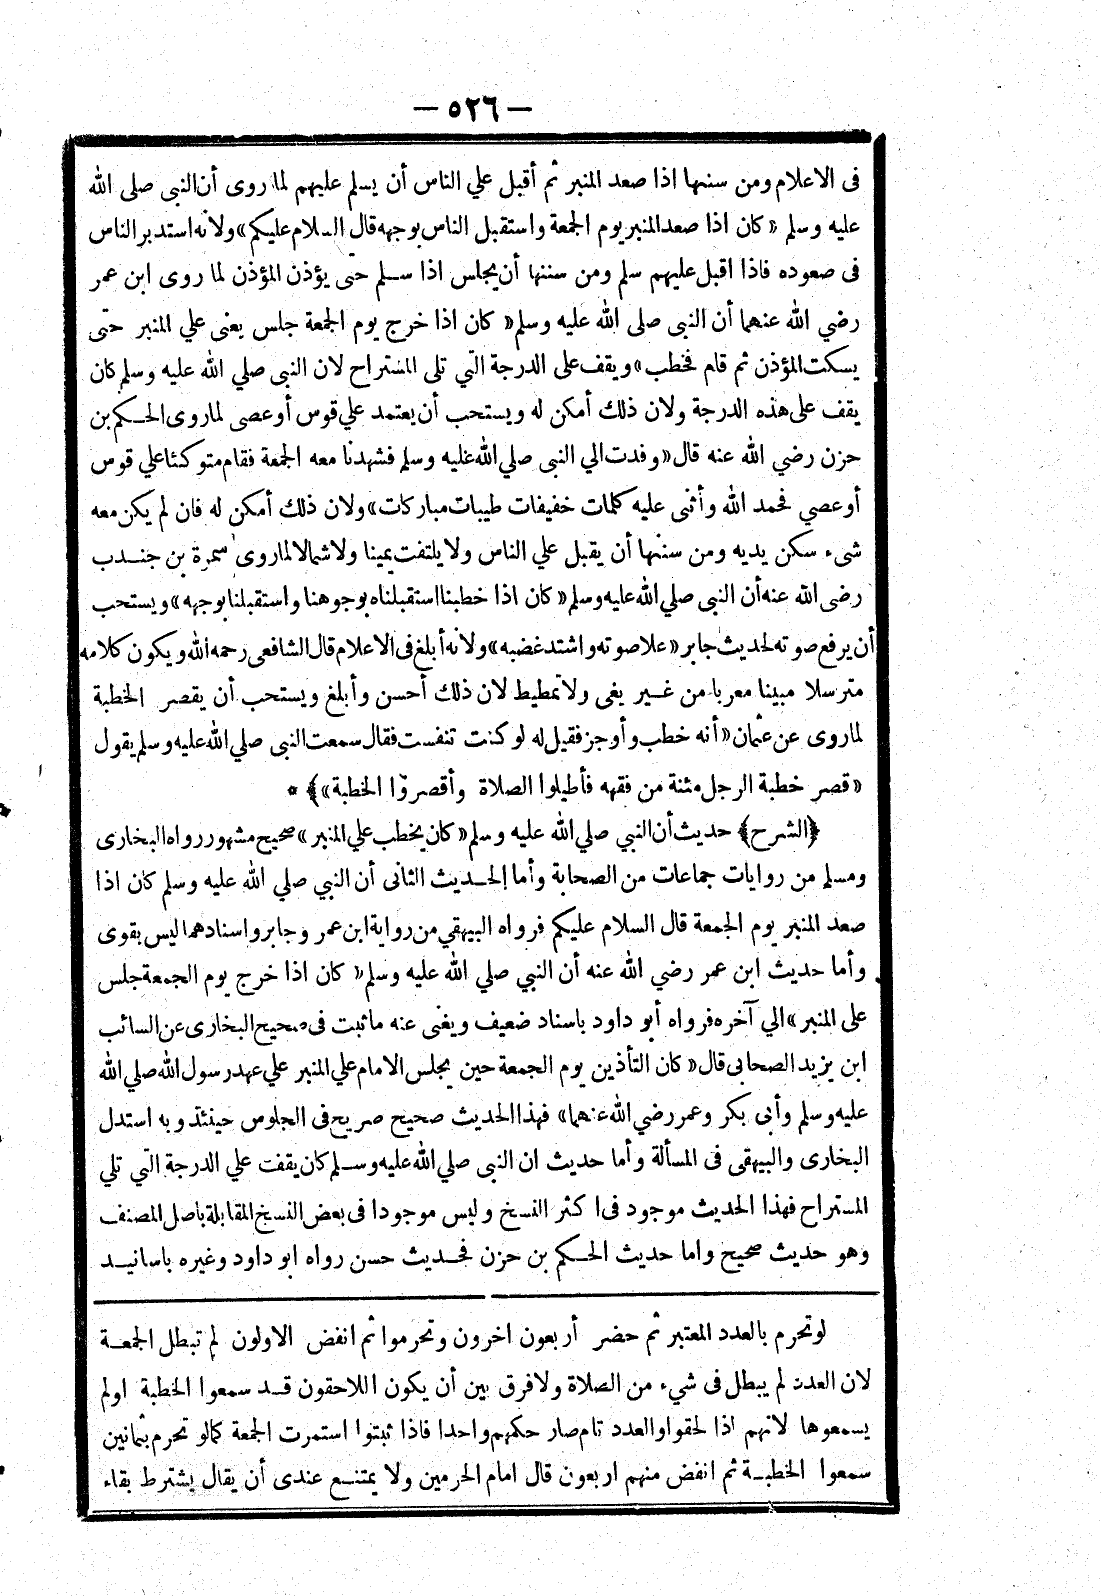 — ٥٢٦ —
فى الاعلام ومن سننها اذا صعد المنبر ثم أقبل علي الناس أن يسلم عليهم لما روى أن النبى صلى الله
عليه وسلم «كان اذا صعد المنبر يوم الجمعة واستقبل الناس بوجهه قال السلام عليكم» ولانه استدبر الناس
فى صعوده فاذا اقبل عليهم سلم ومن سننها أن يجلس اذا سلم حتى يؤذن المؤذن لما روى ابن عمر
رضي الله عنهما أن النبى صلى الله عليه وسلم «كان اذا خرج يوم الجمعة جلس يعنى علي المنبر حتى
يسكت المؤذن ثم قام فخطب» ويقف على الدرجة التي تلى المستراح لان النبى صلي الله عليه وسلم كان
يقف على هذه الدرجة ولان ذلك أمكن له ويستحب أن يعتمد علي قوس أو عصى لما روى الحكم بن
حزن رضي الله عنه قال «وفدت الي النبى صلي الله عليه وسلم فشهدنا معه الجمعة فقام متوكئا علي قوس
أو عصي فحمد الله وأثنى عليه كلمات خفيفات طيبات مباركات» ولان ذلك أمكن له فان لم يكن معه
شىء سكن يديه ومن سننها أن يقبل علي الناس ولا يلتفت يمينا ولا شمالا لما روى سمرة بن جندب
رضى الله عنه أن النبى صلي الله عليه وسلم «كان اذا خطبنا استقبلناه بوجوهنا واستقبلنا بوجهه» ويستحب
أن يرفع صوته لحديث جابر «علا صوته واشتد غضبه» ولانه أبلغ فى الاعلام قال الشافعى رحمه الله ويكون كلامه
مترسلا مبينا معربا من غير يغى ولا تمطيط لان ذلك أحسن وأبلغ ويستحب أن يقصر الخطبة
لما روى عن عثمان «أنه خطب وأوجز فقيل له لو كنت تنفست فقال سمعت النبى صلي الله عليه وسلم يقول
«قصر خطبة الرجل مئنة من فقهه فأطيلوا الصلاة وأقصروا الخطبة»﴾ *
﴿الشرح﴾ حديث أن النبي صلي الله عليه وسلم «كان يخطب علي المنبر» صحيح مشهور رواه البخارى
ومسلم من روايات جماعات من الصحابة وأما الحديث الثانى أن النبي صلي الله عليه وسلم كان اذا
صعد المنبر يوم الجمعة قال السلام عليكم فرواه البيهقي من رواية ابن عمر وجابر واسنادهما ليس بقوى
وأما حديث ابن عمر رضي الله عنه أن النبي صلي الله عليه وسلم «كان اذا خرج يوم الجمعة جلس
على المنبر» الي آخره فرواه أبو داود باسناد ضعيف ويغنى عنه ما ثبت فى صحيح البخارى عن السائب
ابن يزيد الصحابى قال «كان التأذين يوم الجمعة حين يجلس الامام علي المنبر علي عهد رسول الله صلي الله
عليه وسلم وأبى بكر وعمر رضي الله عنهما» فهذا الحديث صحيح صريح فى الجلوس حينئذ وبه استدل
البخارى والبيهقى فى المسألة وأما حديث ان النبى صلي الله عليه وسلم كان يقفت علي الدرجة التي تلي
المستراح فهذا الحديث موجود فى اكثر النسخ وليس موجودا فى بعض النسخ المقابلة باصل المصنف
وهو حديث صحيح واما حديث الحكم بن حزن فحديث حسن رواه ابو داود وغيره باسانيد
لو تحرم بالعدد المعتبر ثم حضر أربعون اخرون وتحرموا ثم انفض الاولون لم تبطل الجمعة
لان العدد لم يبطل فى شيء من الصلاة ولا فرق بين أن يكون اللاحقون قد سمعوا الخطبة او لم
يسمعوها لانهم اذا لحقوا والعدد تام صار حكمهم واحدا فاذا ثبتوا استمرت الجمعة كما لو تحرم بثمانين
سمعوا الخطبة ثم انفض منهم اربعون قال امام الحرمين ولا يمتنع عندى أن يقال يشترط بقاء